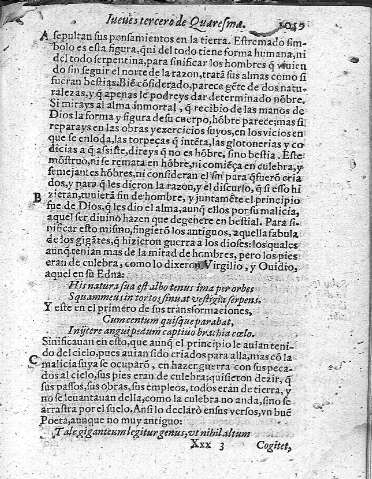 Iueues tercero de Quaresma. 1049
A sepultan sus pensamientos en la tierra. Estremado sim-
bolo es essa figura, q̃ ni del todo tiene forma humana, ni
del todo serpentina, para sinificar los hombres q̃ viuien
do sin seguir el norte de la razon, tratã sus almas como si
fueran bestias. Biẽ cõsiderado, parece gẽte de dos natu-
ralezas, y q̃ apenas le podreys dar determinado nõbre.
Si mirays al alma immortal, q̃ recibio de las manos de
Dios la forma y figura de su cuerpo, hõbre parece; mas si
reparays en las obras y exercicios suyos, en los vicios en
que se enloda, las torpeças q̃ intẽta, las glotonerias y co
dicias a q̃ assiste, direys q̃ no es hõbre, sino bestia. Este
mõstruo, ni se remata en hõbre, ni comiẽça en culebra, y
semejantes hõbres, ni consideran el fin para q̃ fuerõ cria
dos, y para q̃ les dieron la razon, y el discurso, q̃ si esso hi
B zieran, tuuierã fin de hombre, y juntamẽte el principio
fue de Dios, q̃ les dio el alma, aunq̃ ellos por su malicia,
aquel ser diuino hazen que degenere en bestial. Para si-
nificar esto mismo, fingierõ los antiguos, aquella fabula
de los gigãtes, q̃ hizieron guerra a los dioses: los quales
aunq̃ tenian mas de la mitad de hombres, pero los pies
eran de culebra, como lo dixerõ Virgilio, y Ouidio,
aquel en su Edna:
His natura sua est albo tenus ima pir orbes
Squammeus in tortos sinuat vestigia serpens.
Y este en el primero de sus transformaciones,
Cum centum quisque parabat,
Inijcere anguipedum captiuo brachia cœlo.
Sinificauan en esto, que aunq̃ el principio le auian teni-
do del cielo, pues auian sido criados para alla, mas cõ la
C malicia suya se ocuparõ, en hazer guerra con sus peca-
dos al cielo, sus pies eran de culebra; quisieron dezir, q̃
sus passos, sus obras, sus empleos, todos eran de tierra, y
no se leuantauan della, como la culebra no anda, sino se
arrastra por el suelo. Ansi lo declarò en sus versos, vn buẽ
Poeta, aunque no muy antiguo:
Tale giganteum legitur genus, vt nihil altum
Xxx 3 Cogitet,